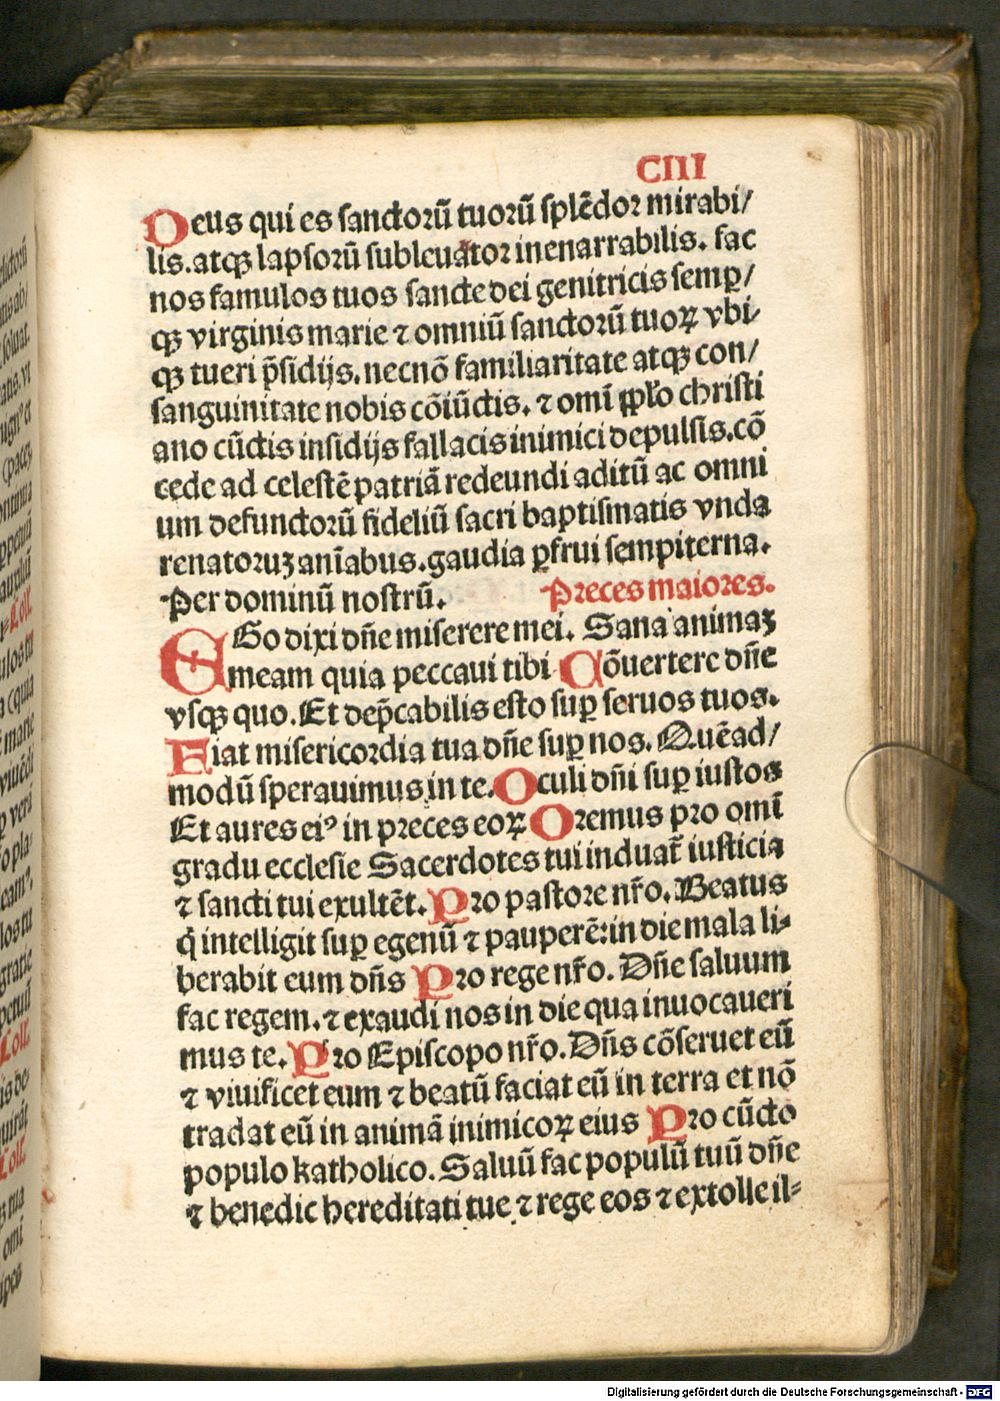 CIII
Deus qui es sanctorū tuorū splēdor mirabi/
lis. atqꝫ lapsorū subleuator inenarrabilis. fac
nos famulos tuos sancte dei genitricis semꝑ/
qꝫ virginis marie ⁊ omniū sanctorū tuoꝝ vbi-
qꝫ tueri p̄sidijs. necnō familiaritate atqꝫ con/
sanguinitate nobis cōiūctis. ⁊ omī pp̄lo christi
ano cūctis insidijs fallacis inimici depulsis. cō
cede ad celestē patriā redeundi aditū ac omni
um defunctorū fideliū sacri baptismatis vnda
renatoruꝫ anīabus. gaudia ꝑfrui sempiterna.
Per dominū nostrū. Preces maiores.
EGo dixi dn̄e miserere mei. Sana animaꝫ
meam quia peccaui tibi Cōuertere dn̄e
vsqꝫ quo. Et dep̄cabilis esto suꝑ seruos tuos.
Fiat misericordia tua dn̄e suꝑ nos. Quēad/
modū sperauimus in te. Oculi dn̄i suꝑ iustos
Et aures eiꝰ in preces eoꝝ Oremus pro omī
gradu ecclesie Sacerdotes tui induāt iusticia
⁊ sancti tui exultēt. Pro pastore nr̄o. Beatus
q̇ intelligit suꝑ egenū ⁊ pauperē: in die mala li-
berabit eum dn̄s Pro rege nr̄o. Dn̄e saluum
fac regem. ⁊ exaudi nos in die qua inuocaueri
mus te. Pro Episcopo nr̄o. Dn̄s cōseruet eū
⁊ viuificet eum ⁊ beatū faciat eū in terra et nō
tradat eū in animā inimicoꝝ eius Pro cūcto
populo katholico. Saluū fac populū tuū dn̄e
⁊ benedic hereditati tue ⁊ rege eos ⁊ extolle il-
Digitalisierung gefördert durch die Deutsche Forschungsgemeinschaft - DFG